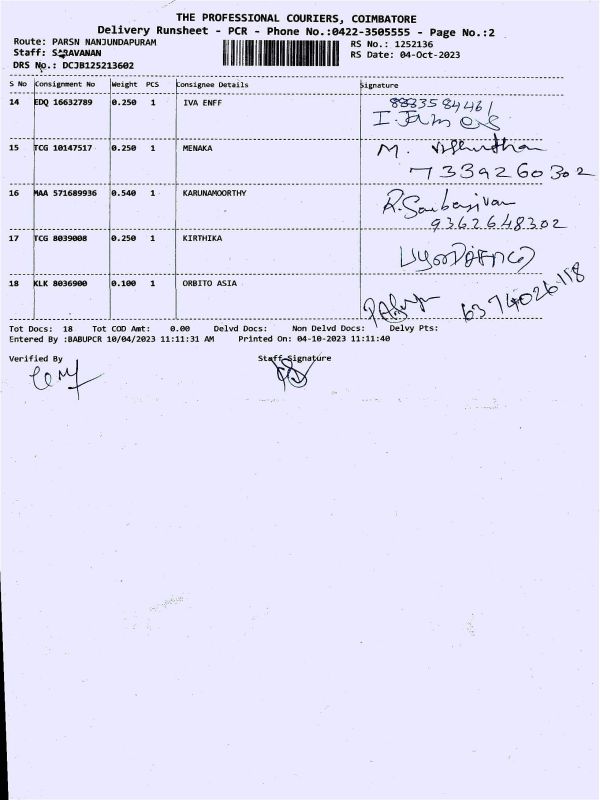 THE PROFESSIONAL COURIERS, COIMBATORE
Delivery Runsheet - PCR - Phone No.:0422-3505555 - Page No.:2
Route: PARSN NANJUNDAPURAM RS No.: 1252136
Staff: SARAVANAN RS Date: 04-Oct-2023
DRS No.: DCJB125213602
S No Consignment No Weight PCS Consignee Details Signature
14 EDQ 16632789 0.250 1 IVA ENFF 8883584461
I. James
15 TCG 10147517 0.250 1 MENAKA M.
7339260302
16 MAA 571689936 0.540 1 KARUNAMOORTHY
9362648302
17 TCG 8039008 0.250 1 KIRTHIKA
18 KLK 8036900 0.100 1 ORBITO ASIA 6374026118
Tot Docs: 18 Tot COD Amt: 0.00 Delvd Docs: Non Delvd Docs: Delvy Pts:
Entered By :BABUPCR 10/04/2023 11:11:31 AM Printed On: 04-10-2023 11:11:40
Verified By Staff Signature